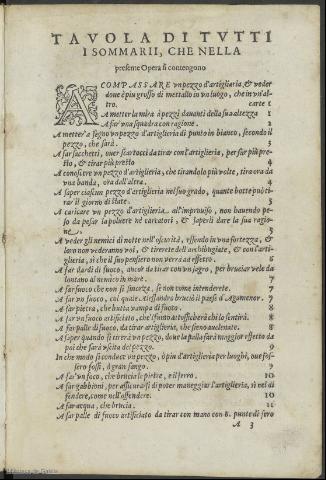 TAVOLA DI TVTTI
I SOMMARII, CHE NELLA
presente Opera si contengono
A COMPASSARE vn pezzo d'artigliaria, & veder
doue è piu grosso di mettallo in vn luogo, che in vn'al-
tro. carte 1
A metter la mira à pezzi dauanti della sua altezza 1
A far' vna squadra con ragione. 2
A metter' a segno vn pezzo d'artiglieria di punto in bianco, secondo il
pezzo, che sarà. 3
A far sacchetti, ouer scartocci da tirar con l'artiglieria, per far piu pre-
sto, & tirar piu presto 4
A conoscere vn pezzo d'artiglieria, che tirandolo piu volte, tira ora da
vna banda, ora dall'altra. 4
A saper ciascun pezzo d'artiglieria nel suo grado, quante botte può ti-
rar il giorno di state. 5
A caricare vn pezzo d'artiglieria all'improuiso, non hauendo pe-
so da pesar la poluere nè cartocci, & saperli dare la sua ragio-
ne. 5
A veder gli nemici di notte nell'oscurità, essendo in vna fortezza, &
loro non vederanno voi, & tirerete dell'archibugiate, & con l'arti-
glieria, sì che il suo pensiero non verrà ad effetto. 6
A far dardi di fuoco, ancor da tirar con vn sagro, per bruciar vele da
lontano al nemico in mare. 7
A far fuoco che non si smorza, se non come intenderete. 7
A far vn fuoco, col quale Alessandro bruciò il paese d'Agamenor. 7
A far pietra, che butta vampa di fuoco. 8
A far vn fuoco artificiato, che'l fumo attossicherà chi lo sentirà. 8
A far palle di fuoco, da tirar artiglierie, che sieno auelenate. 8
A saper quando si tirerà vn pezzo, doue la palla farà maggior effetto da
poi che sarà vscita del pezzo. 9
In che modo si conduce vn pezzo, ò piu d'artiglieria per luoghi, oue fos-
sero fossi, ò gran fango. 9
A far' vn foco, che brucia le pietre, e il ferro. 10
A far gabbioni, per assicurarsi di poter maneggiar l'artiglieria, sì nel di-
fendere, come nell'offendere. 10
A far acqua, che brucia. 11
A far palle di fuoco artificiato da tirar con mano con 8. punte di fero
A 3